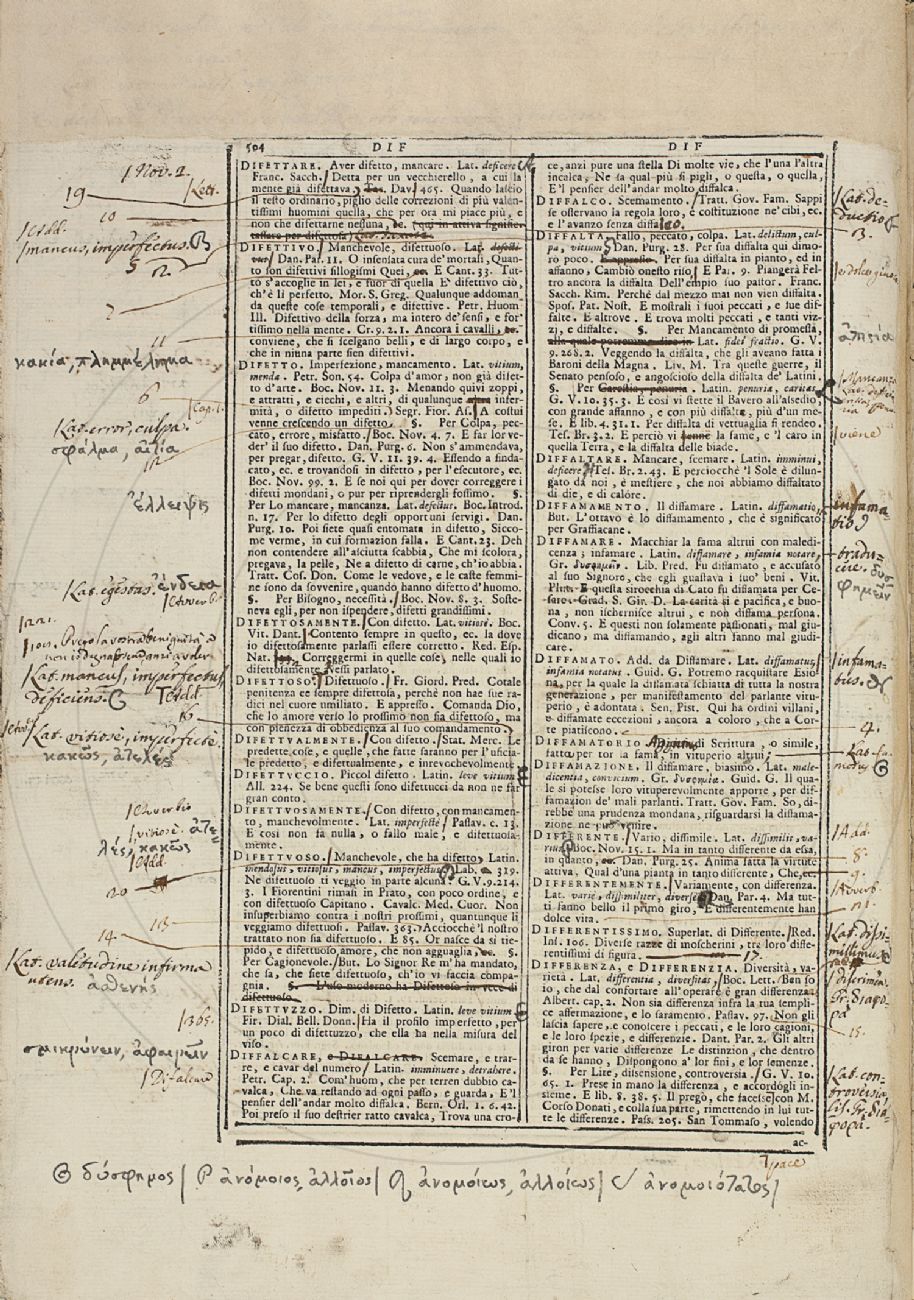 504 DIF DIF
DIFETTARE. Aver difetto, mancare. Lat. deficere
Franc. Sacch. Detta per un vecchierello, a cui la
mente già difettava. Dav. 465. Quando lascio
il testo ordinario, piglio delle correzioni di più valen-
tissimi huomini quella, che per ora mi piace più, e
non che difettarne nessuna, ec. (qui in attiva signific.
DIFETTIVO. Manchevole, difettuoso. Lat. defecti-
vus Dan. Par. 11. O insensata cura de' mortali, Quan-
to son difettivi sillogismi Quei, ec. E Cant. 33. Tut-
to s'accoglie in lei, e fuor di quella E' difettivo ciò,
ch'è lì perfetto. Mor. S. Greg. Qualunque addoman-
da queste cose temporali, e difettive. Petr. Huom.
Ill. Difettivo della forza, ma intero de' sensi, e for-
tissimo nella mente. Cr. 9. 2. 1. Ancora i cavalli, ec.
conviene, che si scelgano belli, e di largo corpo, e
che in niuna parte sien difettivi.
DIFETTO. Imperfezione, mancamento. Lat. vitium,
menda. Petr. Son. 54. Colpa d'amor, non già difet-
to d'arte. Boc. Nov. 11. 3. Menando quivi zoppi,
e attratti, e ciechi, e altri, di qualunque infer-
mità, o difetto impediti. Segr. Fior. As. A costui
venne crescendo un difetto. §. Per Colpa, pec-
cato, errore, misfatto. Boc. Nov. 4. 7. E far lor ve-
der' il suo difetto. Dan. Purg. 6. Non s'ammendava,
per pregar, difetto. G. V. 11. 39. 4. Essendo a sinda-
cato, ec. e trovandosi in difetto, per l'esecutore, ec.
Boc. Nov. 99. 2. E se noi qui per dover correggere i
difetti mondani, o pur per riprendergli fossimo. §.
Per Lo mancare, mancanza. Lat. defectus. Boc. Introd.
n. 17. Per lo difetto degli opportuni servigi. Dan.
Purg. 10. Poi siete quasi entomata in difetto, Sicco-
me verme, in cui formazion falla. E Cant. 23. Deh
non contendere all'asciutta scabbia, Che mi scolora,
pregava, la pelle, Ne a difetto di carne, ch'io abbia.
Tratt. Cos. Don. Come le vedove, e le caste femmi-
ne sono da sovvenire, quando hanno difetto d'huomo.
Per Bisogno, necessità. Boc. Nov. 8. 3. Soste-
neva egli, per non ispendere, difetti grandissimi.
DIFETTOSAMENTE. Con difetto. Lat. vitiosè. Boc.
Vit. Dant. Contento sempre in questo, ec. la dove
io difettosamente parlassi essere corretto. Red. Esp.
Nat. Correggermi in quelle cose, nelle quali io
difettosamente Nessi parlato.
DIFETTOSO. Difettuoso. Fr. Giord. Pred. Cotale
penitenza ee sempre difettosa, perchè non hae sue ra-
dici nel cuore umiliato. E appresso. Comanda Dio,
che lo amore verso lo prossimo non sia difettoso, ma
con pienezza di obbedienza al suo comandamento.
DIFETTUALMENTE. Con difetto. Stat. Merc. Le
predette cose, e quelle, che fatte saranno per l'uficia-
le predetto, e difettualmente, e inrevochevolmente
DIFETTUCCIO. Piccol difetto. Latin. leve vitium
All. 224. Se bene questi sono difettucci da non ne far
gran conto.
DIFETTUOSAMENTE. Con difetto, con mancamen-
to, manchevolmente. Lat. imperfectè Passav. c. 13.
E così non fa nulla, o fallo male, e difettuosa-
mente.
DIFETTUOSO. Manchevole, che ha difetto. Latin.
mendosus, vitiosus, mancus, imperfectus Lab. 319.
Ne difettuoso ti veggio in parte alcuna. G. V. 9. 214.
3. I Fiorentini rimasi in Prato, con poco ordine, e
con difettuoso Capitano. Cavalc. Med. Cuor. Non
insuperbiamo contra i nostri prossimi, quantunque li
veggiamo difettuosi. Passav. 363. Acciocchè 'l nostro
trattato non sia difettuoso. E 85. Or nasce da sì tie-
pido, e difettuoso amore, che non agguaglia, ec. §.
Per Cagionevole. But. Lo Signor Re m'ha mandato,
che sa, che siete difettuoso, ch'io vi faccia compa-
gnia. §. L'uso moderno ha Difettoso in vece di
difettuoso.
DIFETTUZZO. Dim. di Difetto. Latin. leve vitium
Fir. Dial. Bell. Donn. Ha il profilo imperfetto, per
un poco di difettuzzo, che ella ha nella misura del
viso.
DIFFALCARE, e DIFALCARE. Scemare, e trar-
re, e cavar del numero. Latin. imminuere, detrahere.
Petr. Cap. 2. Com'huom, che per terren dubbio ca-
valca, Che va restando ad ogni passo, e guarda, E'l
pensier dell'andar molto diffalca. Bern. Orl. 1. 6. 42.
Poi preso il suo destrier ratto cavalca, Trova una cro-
ce, anzi pure una stella Di molte vie, che l'una l'altra
incalca, Ne sa qual più si pigli, o questa, o quella,
E'l pensier dell'andar molto diffalca.
DIFFALCO. Scemamento. Tratt. Gov. Fam. Sappi
se osservano la regola loro, e costituzione ne' cibi, ec.
e l'avanzo senza diffalco.
DIFFALTA. Fallo, peccato, colpa. Lat. delictum, cul-
pa, vitium Dan. Purg. 28. Per sua diffalta qui dimo-
rò poco. E appresso. Per sua diffalta in pianto, ed in
affanno, Cambiò onesto riso. E Par. 9. Piangerà Fel-
tro ancora la diffalta Dell'empio suo pastor. Franc.
Sacch. Rim. Perchè dal mezzo mai non vien diffalta.
Spos. Pat. Nost. E mostrali i suoi peccati, e sue dif-
falte. E altrove. E trova molti peccati, e tanti viz-
zj, e diffalte. §. Per Mancamento di promessa,
Lat. fidei fractio. G. V.
9. 268. 2. Veggendo la diffalta, che gli aveano fatta i
Baroni della Magna. Liv. M. Tra queste guerre, il
Senato pensoso, e angoscioso della diffalta de' Latini.
§. Per Carestia, penuria. Latin. penuria, caritas.
G. V. 10. 35. 3. E così vi stette il Bavero all'assedio,
con grande affanno, e con più diffalta, più d'un me-
se. E lib. 4. 31. 1. Per diffalta di vettuaglia si rendeo.
Tes. Br. 3. 2. E perciò vi la fame, e 'l caro in
quella Terra, e la diffalta delle biade.
DIFFALTARE. Mancare, scemare. Latin. imminui,
deficere Tes. Br. 2. 43. E perciocchè 'l Sole è dilun-
gato da noi, è mestiere, che noi abbiamo diffaltato
di die, e di calore.
DIFFAMAMENTO. Il diffamare. Latin. diffamatio
But. L'ottavo è lo diffamamento, che è significato
per Graffiacane.
DIFFAMARE. Macchiar la fama altrui con maledi-
cenza; infamare. Latin. diffamare, infamia notare,
Gr. δυσφημεῖν. Lib. Pred. Fu diffamato, e accusato
al suo Signore, che egli guastava i suo' beni. Vit.
Plut. E questa sirocchia di Cato fu diffamata per Ce-
sare. Grad. S. Gir. D. La carità si e pacifica, e buo-
na, non ischernisce altrui, e non diffama persona.
Conv. 5. E questi non solamente passionati, mal giu-
dicano, ma diffamando, agli altri fanno mal giudi-
care.
DIFFAMATO. Add. da Diffamare. Lat. diffamatus,
infamia notatus. Guid. G. Potremo racquistare Esio-
na, per la quale la diffamata schiatta di tutta la nostra
generazione, per manifestamento del parlante vitu-
perio, è adontata. Sen. Pist. Qui ha ordini villani,
e diffamate eccezioni, ancora a coloro, che a Cor-
te piatiscono.
DIFFAMATORIO. di Scrittura, o simile,
fatta per tor la fama, in vituperio altrui;
DIFFAMAZIONE. Il diffamare, biasimo. Lat. male-
dicentia, convicium. Gr. δυσφημία. Guid. G. Il qua-
le si potesse loro vituperevolmente apporre, per dif-
famazion de' mali parlanti. Tratt. Gov. Fam. So, di-
rebbe una prudenza mondana, risguardarsi la diffama-
zione ne può venire.
DIFFERENTE. Vario, dissimile. Lat. dissimilis, va-
rius Boc. Nov. 15. 1. Ma in tanto differente da essa,
in quanto, ec. Dan. Purg. 25. Anima fatta la virtute
attiva, Qual d'una pianta in tanto differente, Che, ec.
DIFFERENTEMENTE. Variamente, con differenza.
Lat. varie, dissimiliter, diversè Dan. Par. 4. Ma tut-
ti fanno bello il primo giro, E differentemente han
dolce vita.
DIFFERENTISSIMO. Superlat. di Differente. Red.
Ins. 106. Diverse razze di moscherini, tra loro diffe-
rentissimi di figura. 17.
DIFFERENZA, e DIFFERENZIA. Diversità, va-
rietà. Lat. differentia, diversitas, Boc. Lett. Ben so
io, che dal confortare all'operare è gran differenza.
Albert. cap. 2. Non sia differenza infra la tua sempli-
ce affermazione, e lo saramento. Passav. 97. Non gli
lascia sapere, e conoscere i peccati, e le loro cagioni,
e le loro spezie, e differenzie. Dant. Par. 2. Gli altri
giron per varie differenze Le distinzion, che dentro
da se hanno, Dispongono a' lor fini, e lor semenze.
§. Per Lite, dissensione, controversia. G. V. 10.
65. 1. Prese in mano la differenza, e accordógli in-
sieme. E lib. 8. 38. 5. Il pregò, che facesse con M.
Corso Donati, e colla sua parte, rimettendo in lui tut-
te le differenze. Pass. 205. San Tommaso, volendo
ac-
Nov. 2.
19
10
Add.
mancus, imperfectus.
2.
11
κακία, πλημμέλημα
6
Lat. error, culpa.
σφάλμα, αἰτία
12
ἔλλειψις
Lat. egestas. ἔνδεια
Lat. mancus, imperfectus
deficiens.
Add.
16
Lat. vitiosè, imperfectè
κακῶς, ἀτελές
Avverbio
vitiosè. ἀτε-
λές, κακῶς
Add.
20
14 13
Lat. valitudine infirma
utens. ἀσθενής
365.
Difalcare
Lat. de-
ductio
3.
Mancanza
viene
infama-
tio
traduc-
ere. δυσ-
φημεῖν
infama-
tus.
4.
Lat. fa-
mosus
Add.
8.
9.
Avverb.
Lat. dissi-
millimus
discrimen.
Gr. διαφο-
ρά
15.
Lat. con-
troversia,
lis. Gr. δια-
φορά.
pace
Θ δύσφημος| ἀνόμοιος, ἀλλοῖος| ἀνομοίως, ἀλλοίως| ἀνομοιότατος|